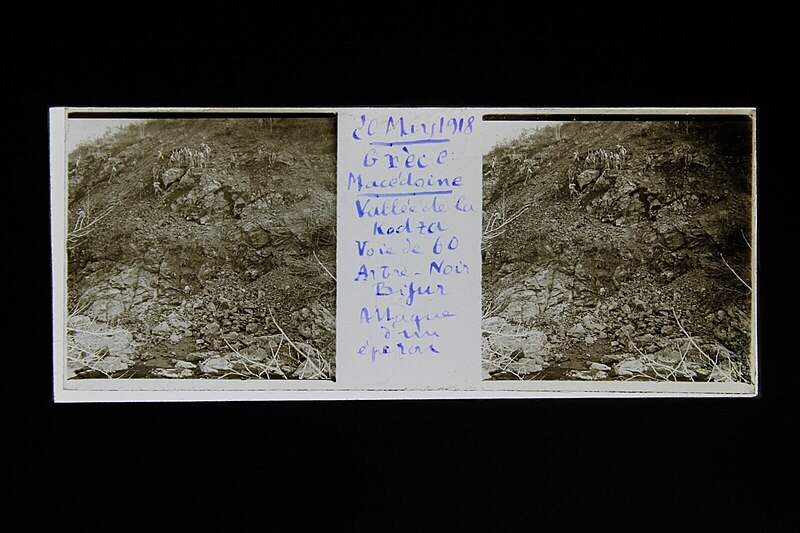 20 Mars 1918
Grèce
Macédoine
Vallée de la
Kodza
Voie de 60
Arbre-Noir
Attaque
d'un
éperon